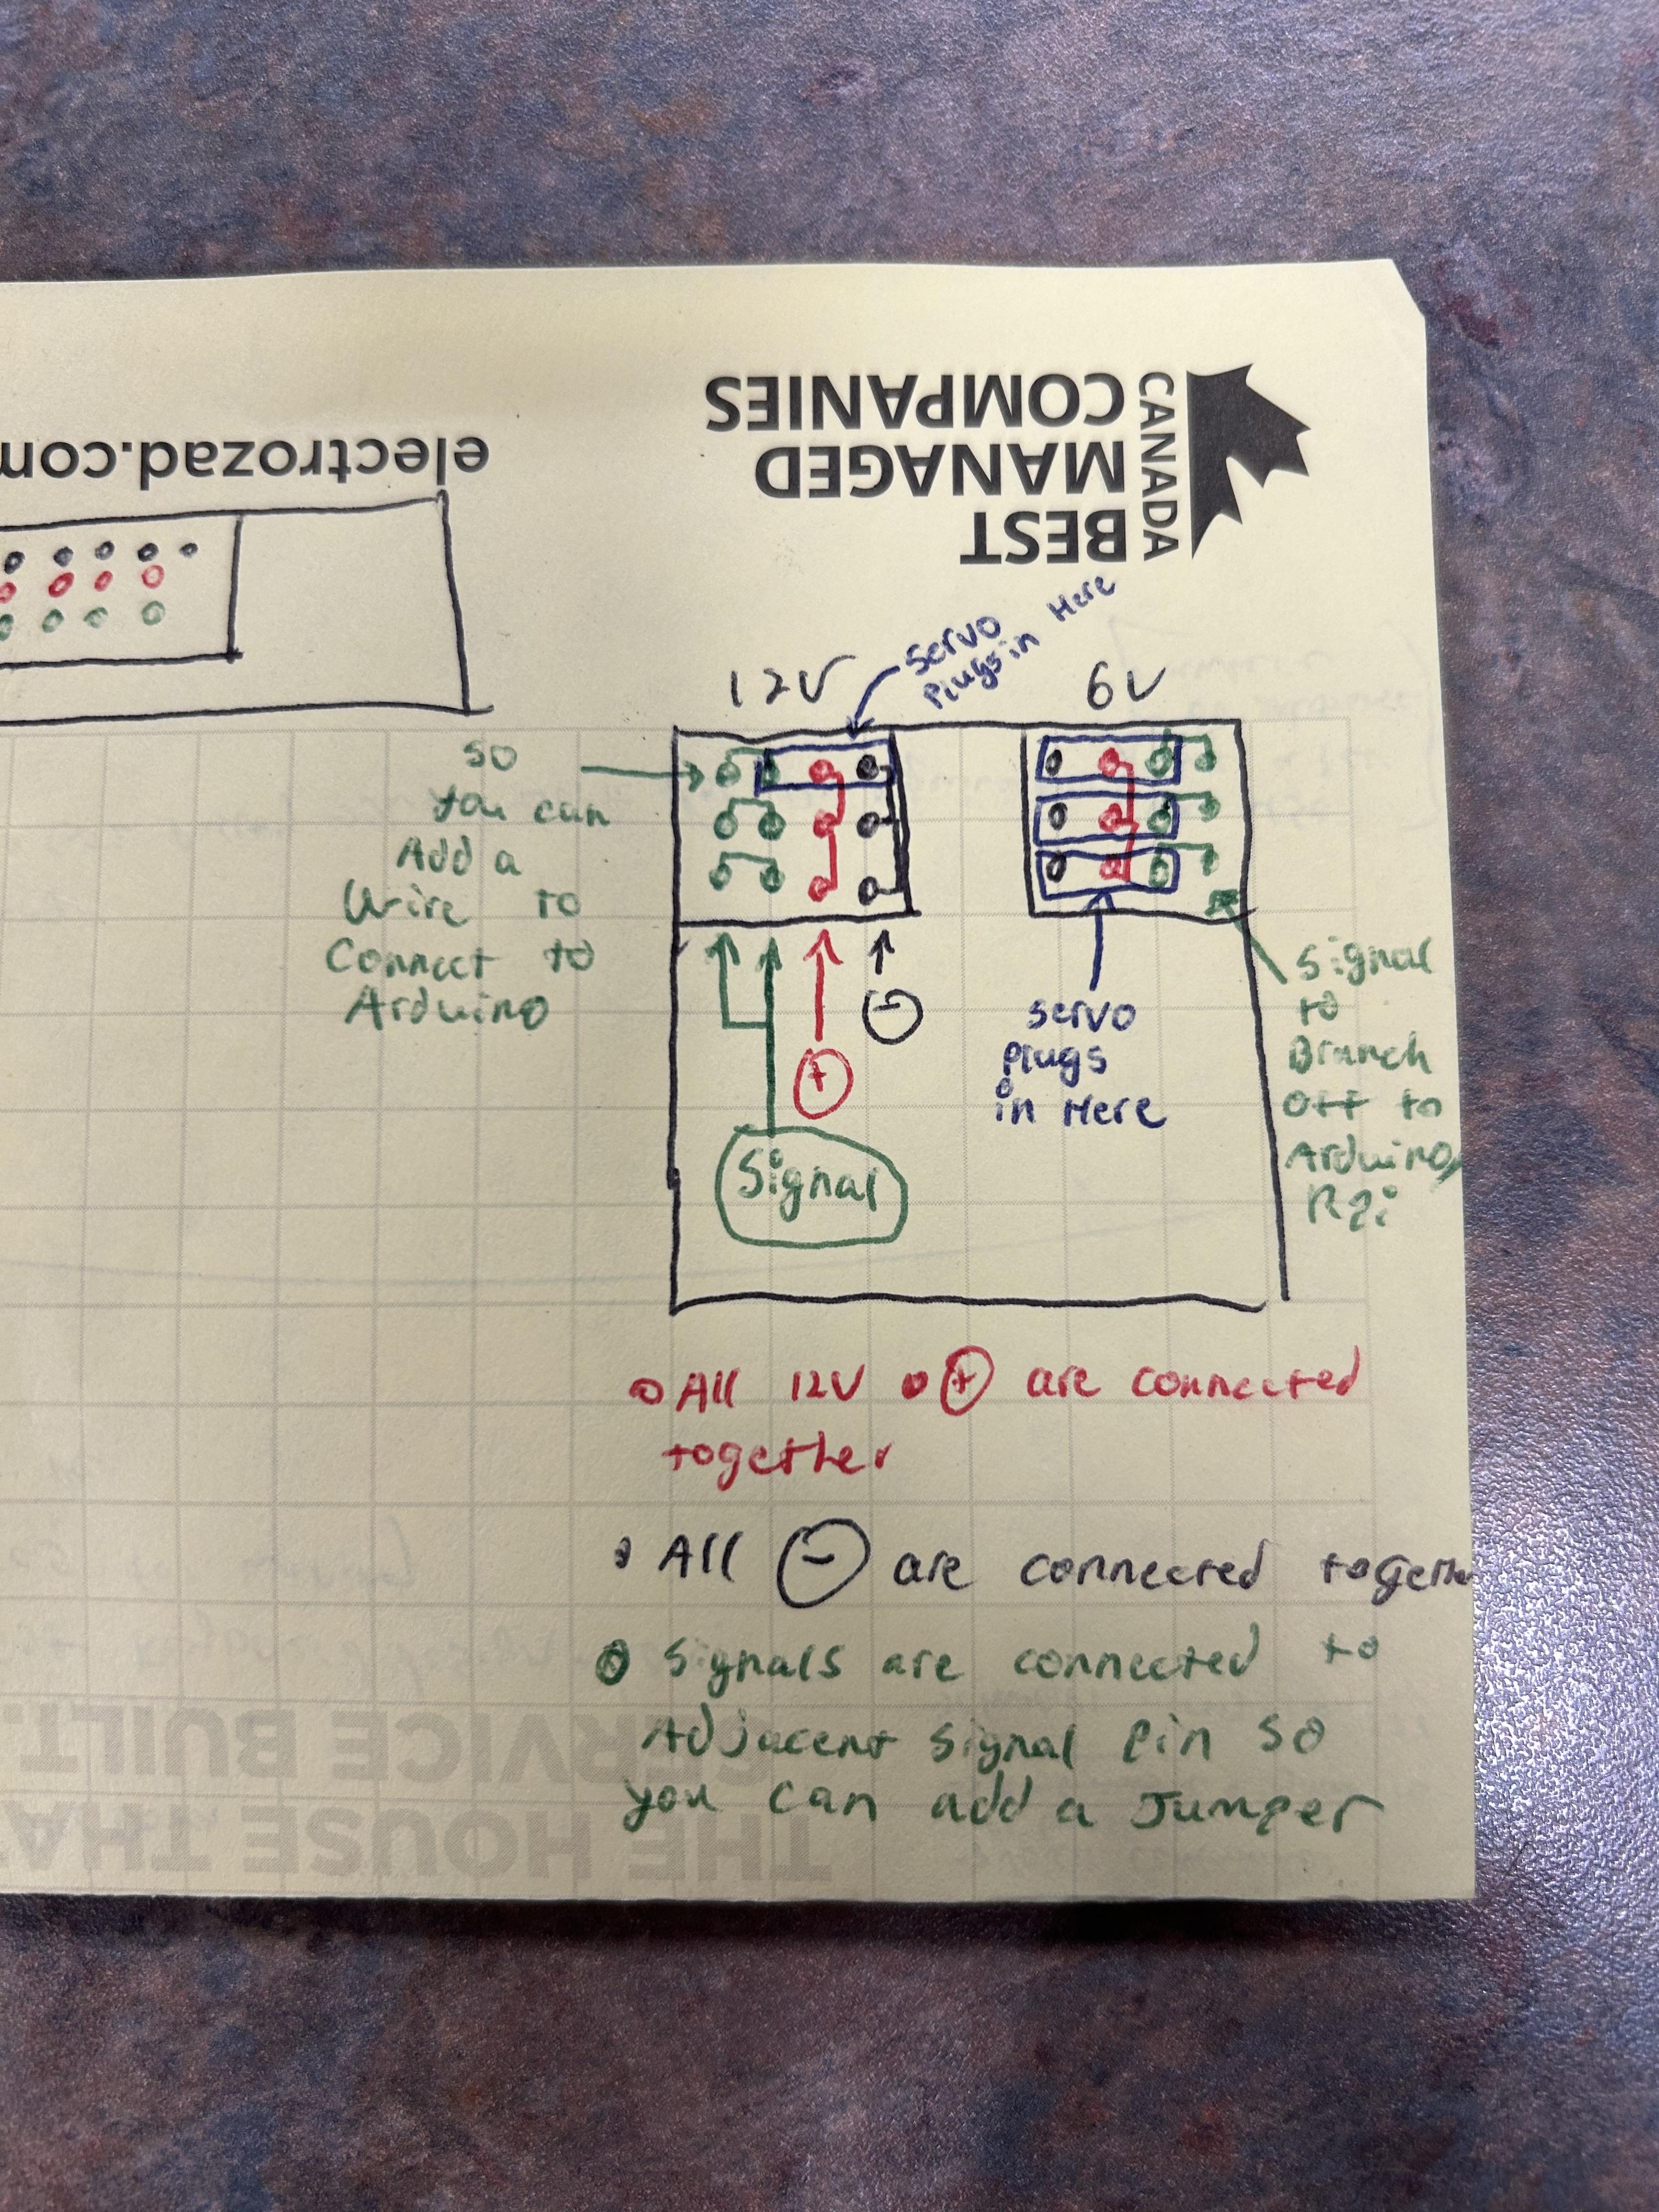 electrozad.com
BEST
MANAGED
COMPANIES
CANADA
Servo
Plugs in Here
12V
6V
so
You can
Add a
Wire to
Connect to
Arduino
+
-
Signal
servo
Plugs
in Here
Signal
to
Branch
Off to
Arduino,
RPi
All 12V + are connected
together
All - are connected together
Signals are connected to
Adjacent Signal Pin so
you can add a Jumper
SERVICE BUILT.
THE HOUSE THA